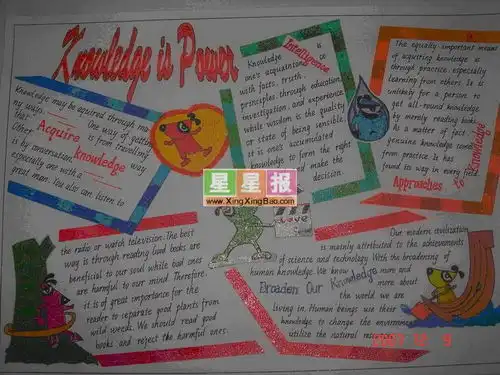 Knowledge is Power
Knowledge may be aquired through ma
ny ways. One way of getting
that is from travelling
Other way
is by conversation,
especially one with a
great men. You also can listen to
Acquire knowledge
Knowledge is
one's acquaintance
with facts, truth,
principles, through education
investigation, and experience
while wisdom is the quality
or state of being sensible.
it is one's accumulated
knowledge to form the right
and make the
decision.
Intelligence
The equally important means
of acquiring knowledge is
through practice, especially
learning from others. It is
unlikely for a person to
get all-round knowledge
by merely reading books.
As a matter of fact,
genuine knowledge comes
from practice. Is has
found its way in every
Approaches to Knowledge
星星报
www.XingXingBao.com
Love
the radio or watch television. The best
way is through reading. Good books are
beneficial to our soul while bad ones
are harmful to our mind. Therefore,
it is of great importance for the
reader to separate good plants from
wild weeds. We should read good
books and reject the harmful ones.
Our modern civilization
is mainly attributed to the achievements
of science and technology. With the broadening of
human knowledge. We know more and
more about
the world we are
living in. Human beings use their
knowledge to change the environment
utilize the natural
Broaden Our Knowledge
2007 12 9